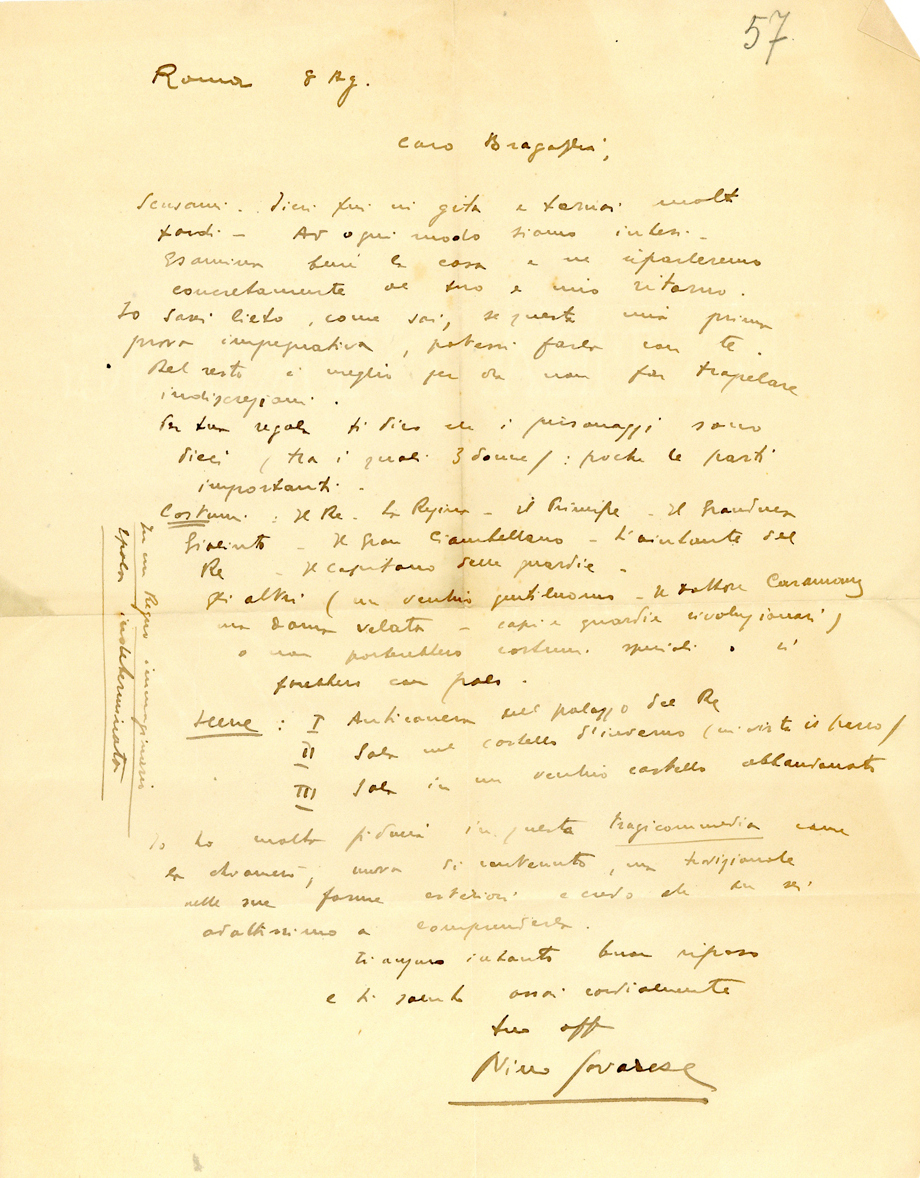 57
Roma 8 Ag.
Caro Bragaglia,
Scusami. Ieri fui in gita e tornai molto
tardi – Ad ogni modo siamo intesi –
Esamina bene la cosa e ne riparleremo
concretamente al tuo e mio ritorno.
Io sarei lieto, come sai, se questa mia prima
prova impegnativa, potessi farla con te.
Del resto è meglio per ora non far trapelare
indiscrezioni.
Per tua regola ti dico che i personaggi sono
dieci (tra i quali 3 donne): poche le parti
importanti –
Costumi: Il Re – La Regina – Il Principe – Il Granduca
Giacinto – Il Gran Ciambellano – L'aiutante del
Re – Il capitano delle guardie –
Gli altri (un vecchio gentiluomo – Il dottore
una dama velata – capi e guardie rivoluzionari)
o non porterebbero costumi speciali o si
farebbero con poco.
Scene: I Anticamera nel palazzo del Re
II Sala nel castello d'inverno (in vista il parco)
III Sala in un vecchio castello abbandonato
In un Regno immaginario
Epoca indeterminata
Io ho molta fiducia in questa tragicommedia come
la chiamerò, nuova di contenuto, ma tradizionale
nelle sue forme esteriori e credo che tu sei
adattissimo a comprenderla.
Ti auguro intanto buon riposo
e ti saluto assai cordialmente
tuo aff
Nino Savarese